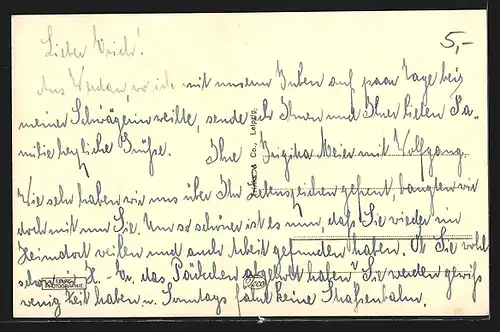 5,-
Lieber Erich!
Aus Werdau, wo ich mit unserm Buben auf paar Tage bei
meiner Schwägerin weilte, sende ich Ihnen und Ihrer lieben Fa-
milie herzliche Grüße. Ihre Meier mit Wolfgang.
Wie sehr haben wir uns über Ihr Lebenszeichen gefreut, bangten wir
doch mit um Sie. Um so schöner ist es nun, daß Sie wieder im
Heimdorf weilen und auch Arbeit gefunden haben. Ob Sie wohl
schon in das Päckchen abgeholt haben? Sie werden gewiß
wenig Zeit haben u. Sonntags fährt keine Straßenbahn.
& Co., Leipzig
PHOTOGRAPHIE